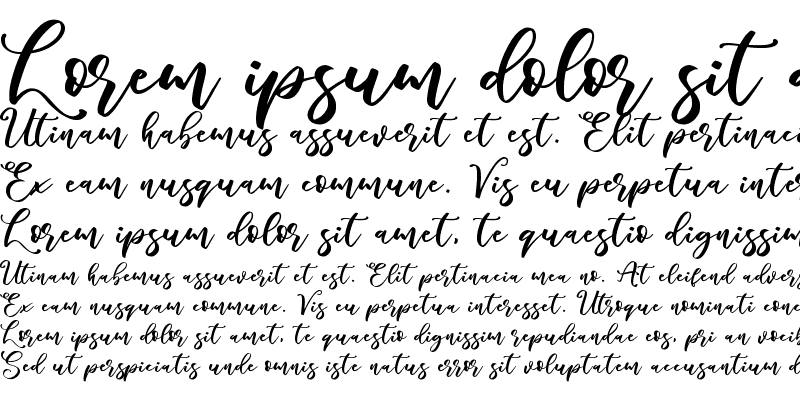 Lorem ipsum dolor sit a
Utinam habemus assueverit et est. Elit pertinacia
Ex eam nusquam commune. Vis eu perpetua inter
Lorem ipsum dolor sit amet, te quaestio dignissim
Utinam habemus assueverit et est. Elit pertinacia mea no. At eleifend advers
Ex eam nusquam commune. Vis eu perpetua interesset. Utroque nominati conc
Lorem ipsum dolor sit amet, te quaestio dignissim repudiandae eos, pri an vocib
Sed ut perspiciatis unde omnis iste natus error sit voluptatem accusantium d